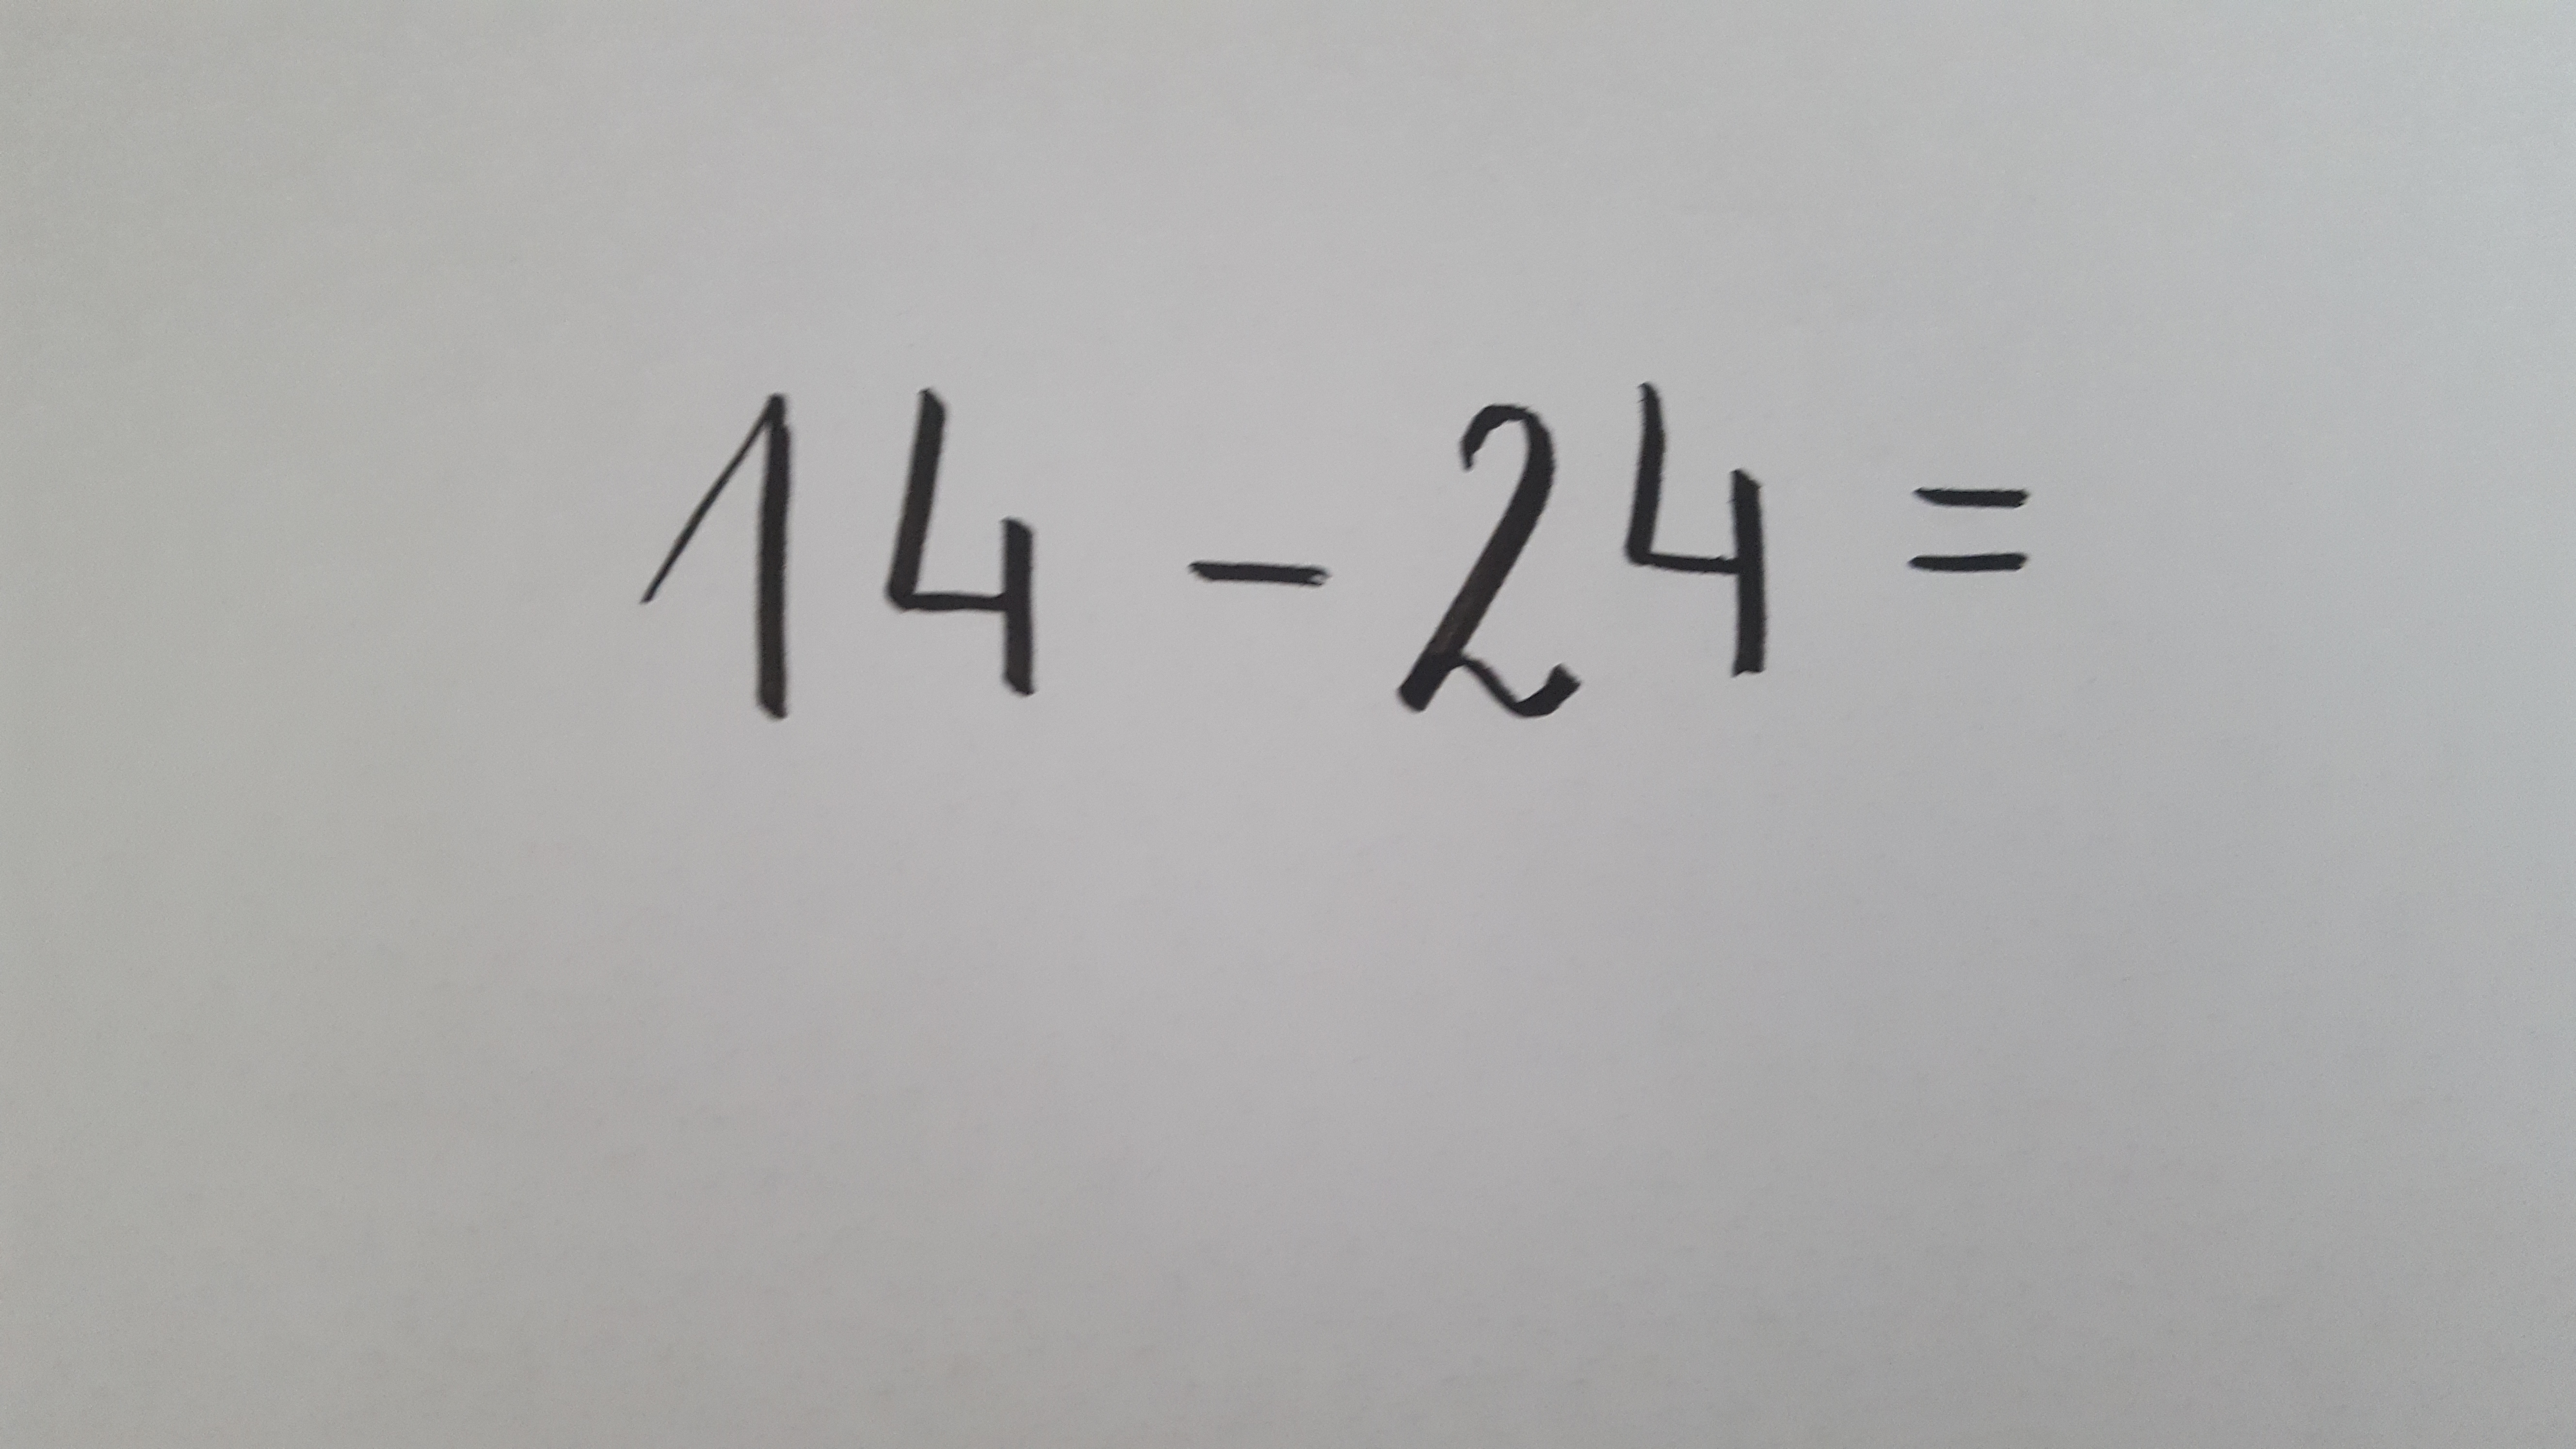 14 - 24 =